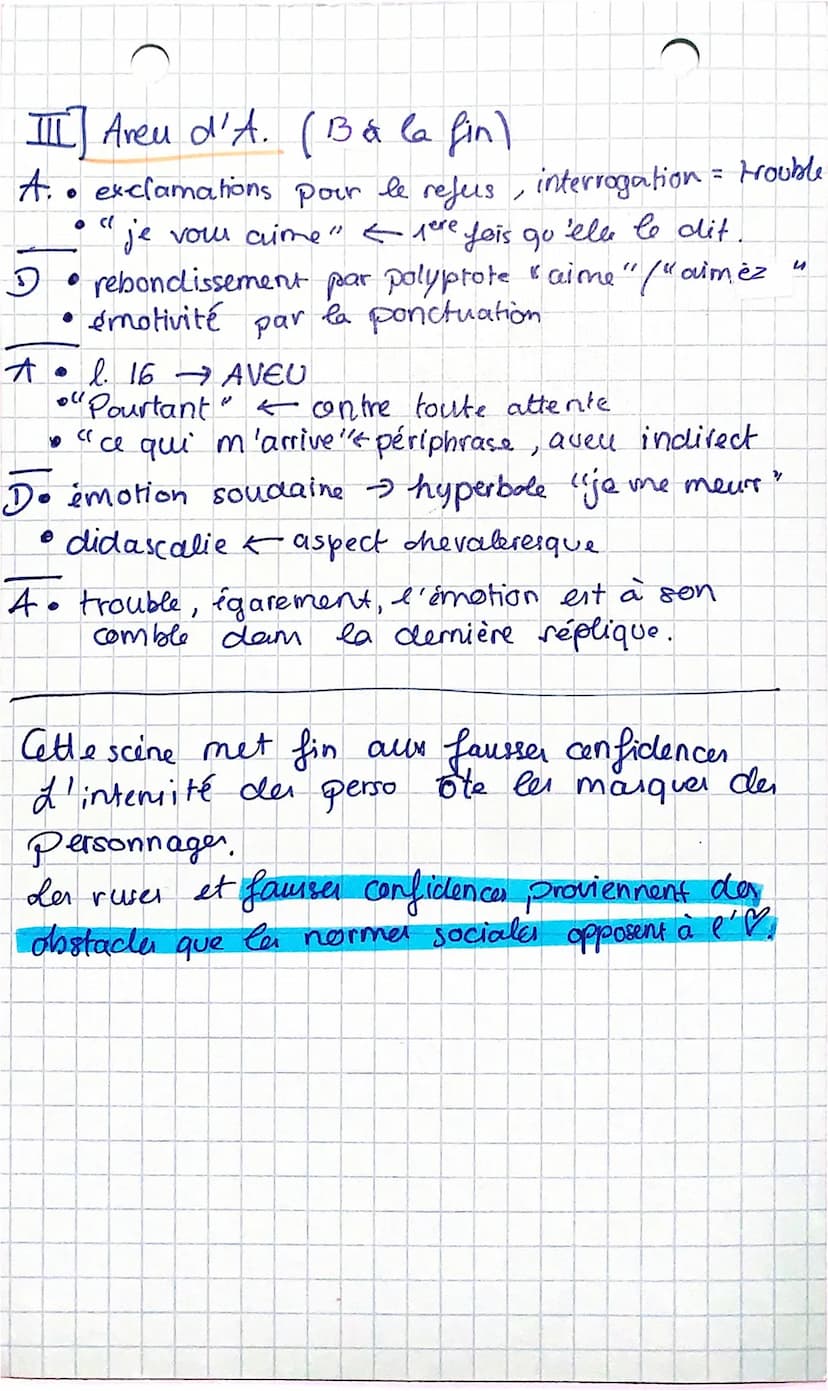 III] Aveu d'A. (13 à la fin)
A. • exclamations pour le refus, interrogation = trouble
• "je vous aime" ← 1ere fois qu'elle le dit.
D • rebondissement par polyptote "aime"/"aimez"
• émotivité par la ponctuation
A • l. 16 → AVEU
• "Pourtant" ← contre toute attente
• "ce qui m'arrive" ← périphrase, aveu indirect
D • émotion soudaine → hyperbole "je me meurs"
• didascalie ← aspect chevaleresque
A • trouble, égarement, l'émotion est à son
comble dans la dernière réplique.
Cette scène met fin aux fausses confidences
L'intensité des perso ôte les masques des
personnages.
Les ruses et fausses confidences proviennent des
obstacles que les normes sociales opposent à l'♡.